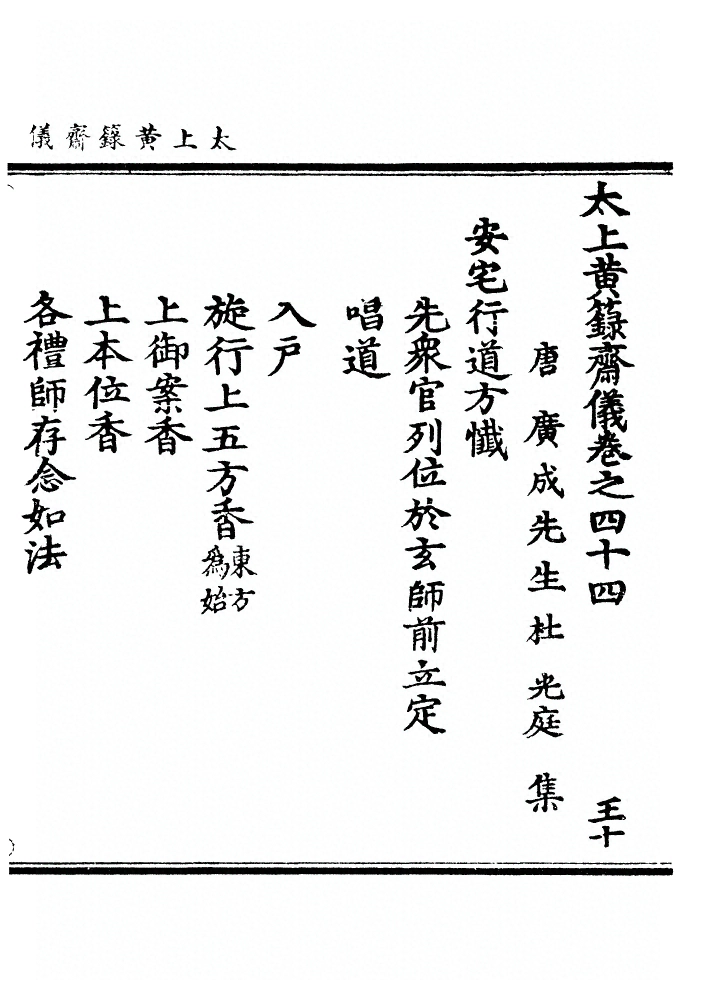 太上黄籙齋儀
太上黄籙齋儀卷之四十四 王十
唐廣成先生杜光庭集
安宅行道方懺
先衆官列位於玄師前立定
唱道
入戶
旋行上五方香東方為始
上御案香
上本位香
各禮師存念如法